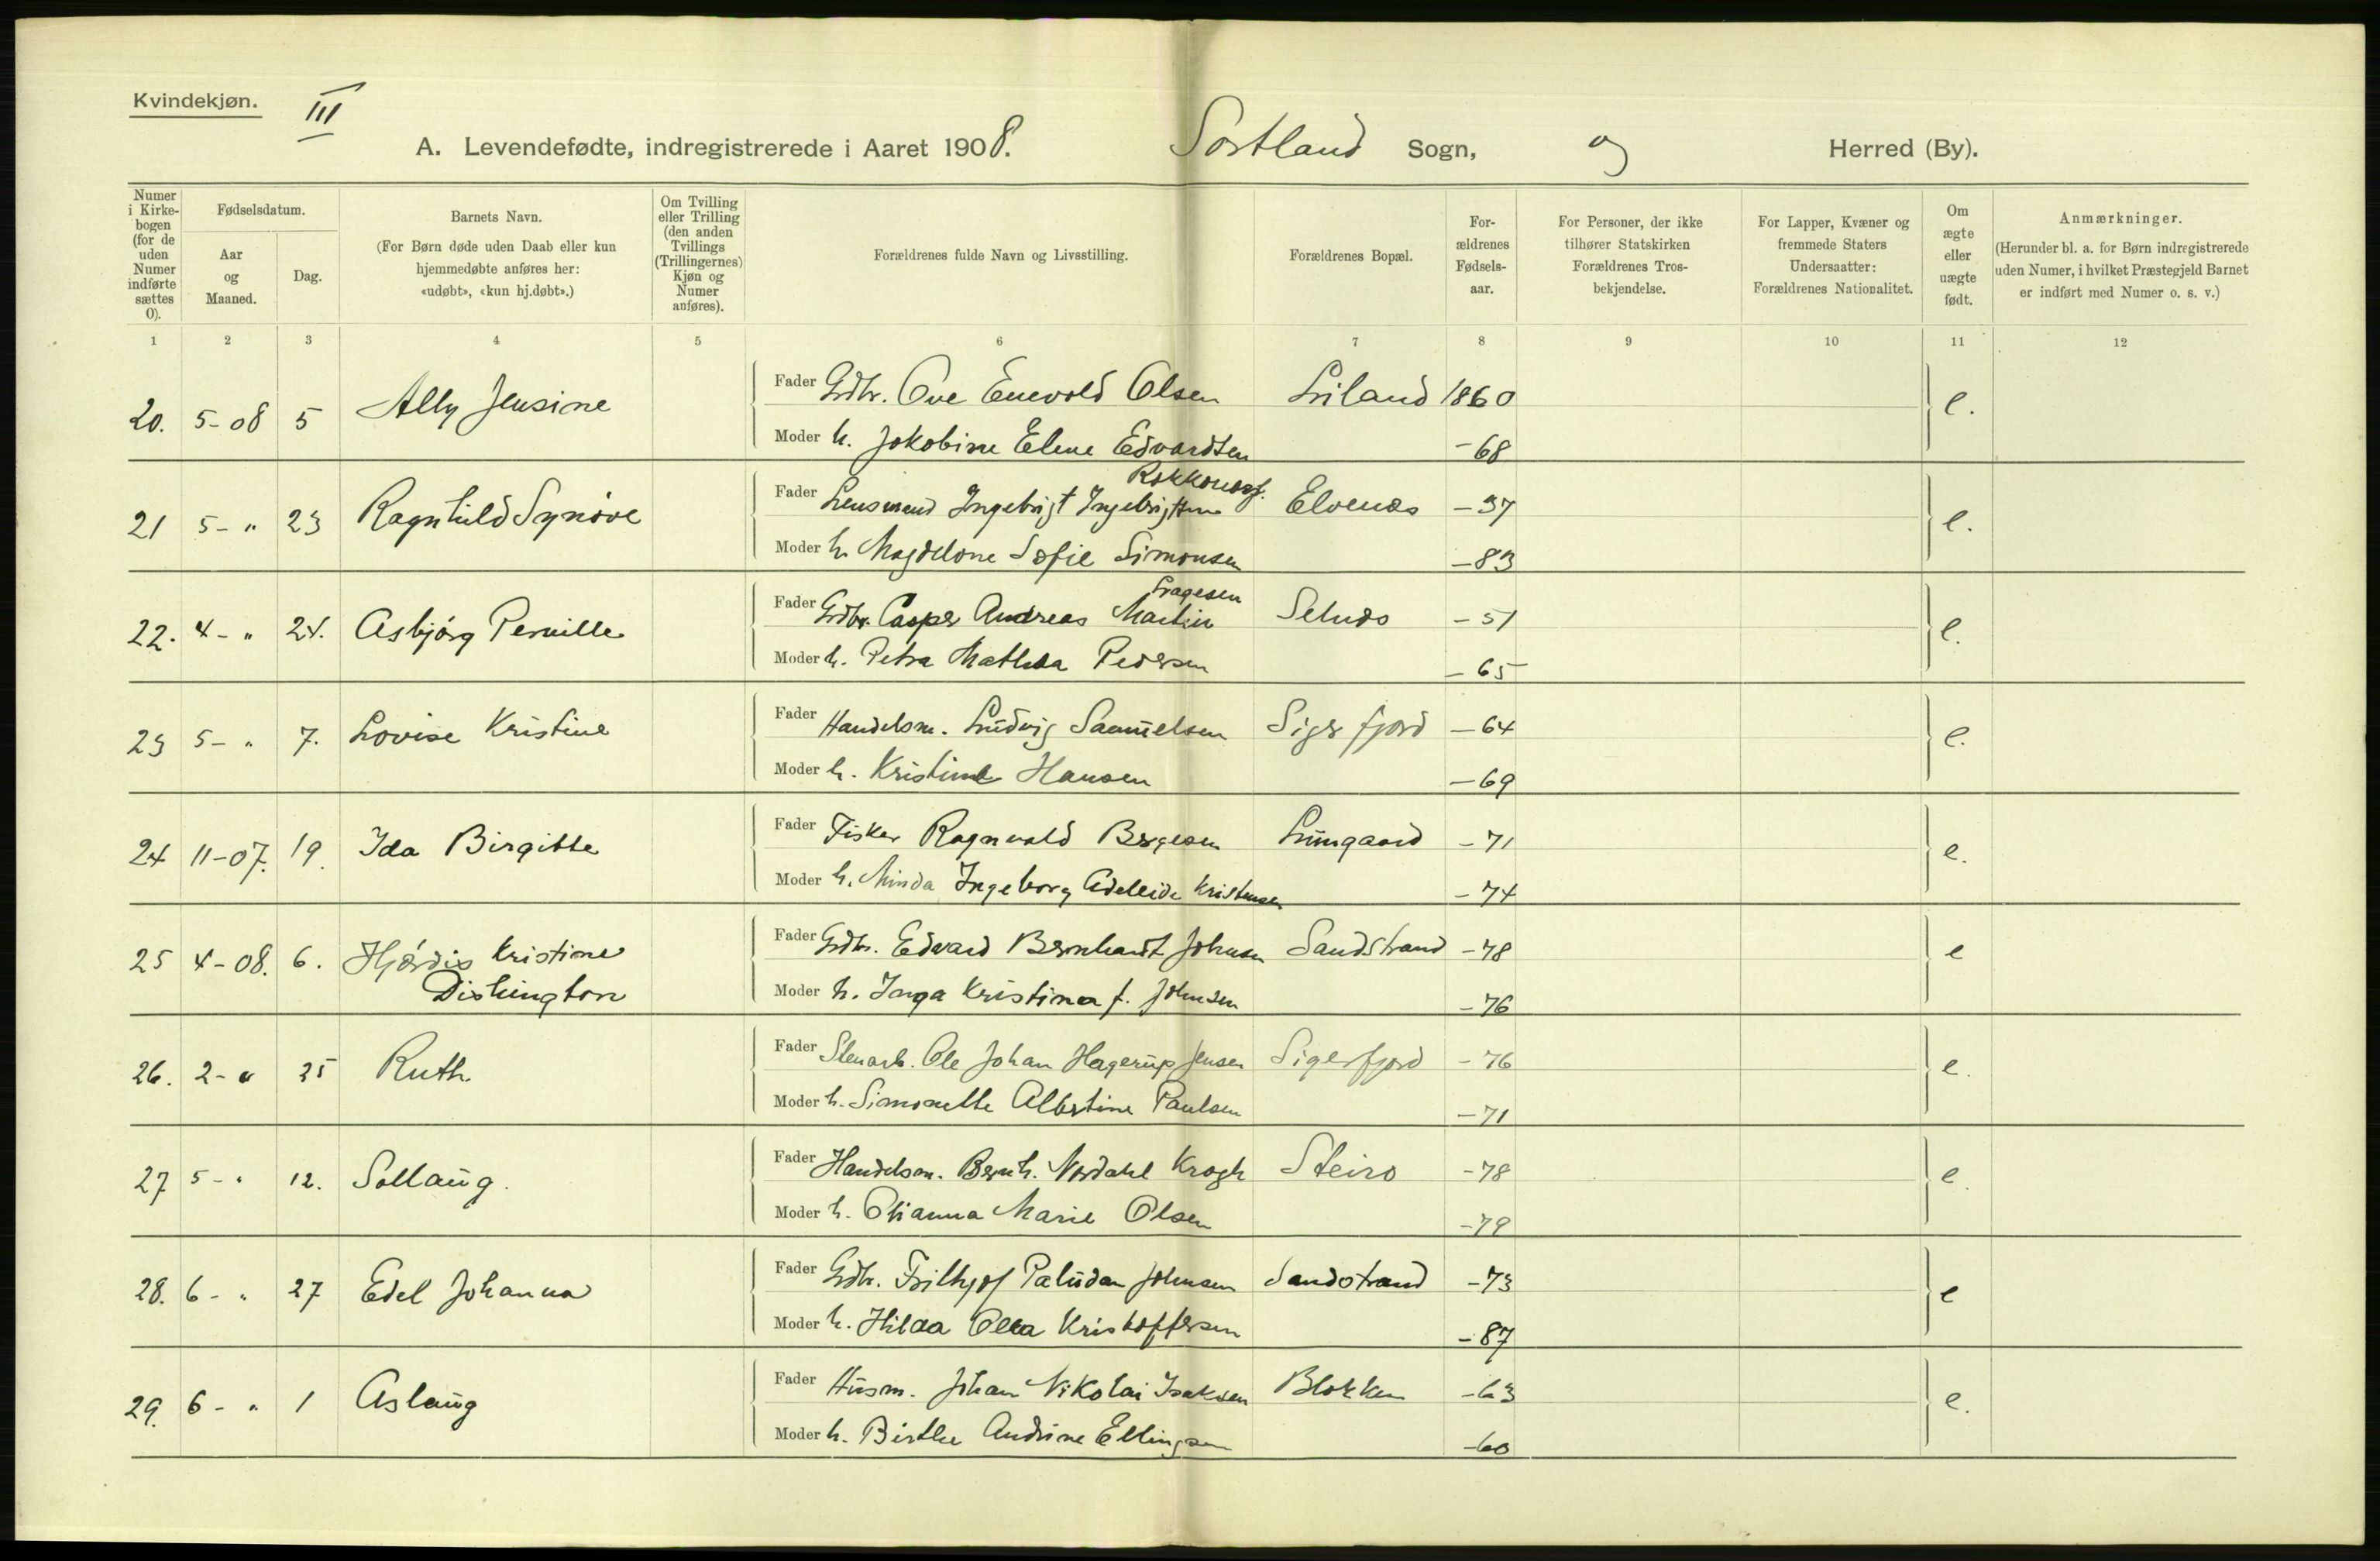 Kvindekjøn.
III
A. Levendefødte, indregistrerede i Aaret 1908. Sortland Sogn, og Herred (By).
Numer i Kirkebogen (for de uden Numer indførte sættes 0).
Fødselsdatum.
Aar og Maaned.
Dag.
Barnets Navn.
(For Børn døde uden Daab eller kun hjemmedøbte anføres her: «udøbt», «kun hj.døbt».)
Om Tvilling eller Trilling (den anden Tvillings (Trillingernes) Kjøn og Numer anføres).
Forældrenes fulde Navn og Livsstilling.
Forældrenes Bopæl.
Forældrenes Fødselsaar.
For Personer, der ikke tilhører Statskirken Forældrenes Trosbekjendelse.
For Lapper, Kvæner og fremmede Staters Undersaatter: Forældrenes Nationalitet.
Om ægte eller uægte født.
Anmærkninger.
(Herunder bl. a. for Børn indregistrerede uden Numer, i hvilket Præstegjeld Barnet er indført med Numer o. s. v.)
1 2 3 4 5 6 7 8 9 10 11 12
20. 5-08 5 Ally Jensine Fader Gdbr. Ove Enevold Olsen Liland 1860 e.
Moder h. Jakobine Elene Edvardsen -68
21 5- " 23 Ragnhild Synöve Fader Lensmand Ingebrigt Ingebrigtsen Elvenes -37 e.
Moder h. Magdelone Sofie Simonsen -83
22. 4- " 24. Asbjörg Pernille Fader Gdbr. Casper Andreas Martin Dragesen Selnes -51 e.
Moder h. Petra Mathea Pedersen -65
23 5- " 7. Lovise Kristine Fader Handelsm. Ludvig Samuelsen Sigerfjord -64 e.
Moder h. Kristine Hansen -69
24 11-07. 19. Ida Birgitte Fader Fisker Ragnvald Bergesen -71 e.
Moder h. Minda Ingeborg Adeleide Kristensen -74
25 4-08. 6. Hjördis Kristine Dishington Fader Gdbr. Edvard Bernhardt Johnsen Sandstrand -78 e
Moder h. Inga Kristina f. Johnsen -76
26. 2- " 25 Ruth. Fader Stenarb. Ole Johan Hagerup Jensen Sigerfjord -76 e.
Moder h. Simonette Albertine Paulsen -71
27 5- " 12. Sollaug. Fader Handelsm. Bernh. Nordahl Krogh Steiro -78 e.
Moder h. Olianna Marie Olsen -79
28. 6- " 27 Edel Johanna Fader Gdbr. Frithjof Paludan Johnsen Sandstrand -73 e
Moder h. Hilda Olea Kristoffersen -87
29. 6- " 1 Aslaug Fader Husm. Johan Nikolai Isaksen Blokken -63 e.
Moder h. Birthe Andrine Ellingsen -60